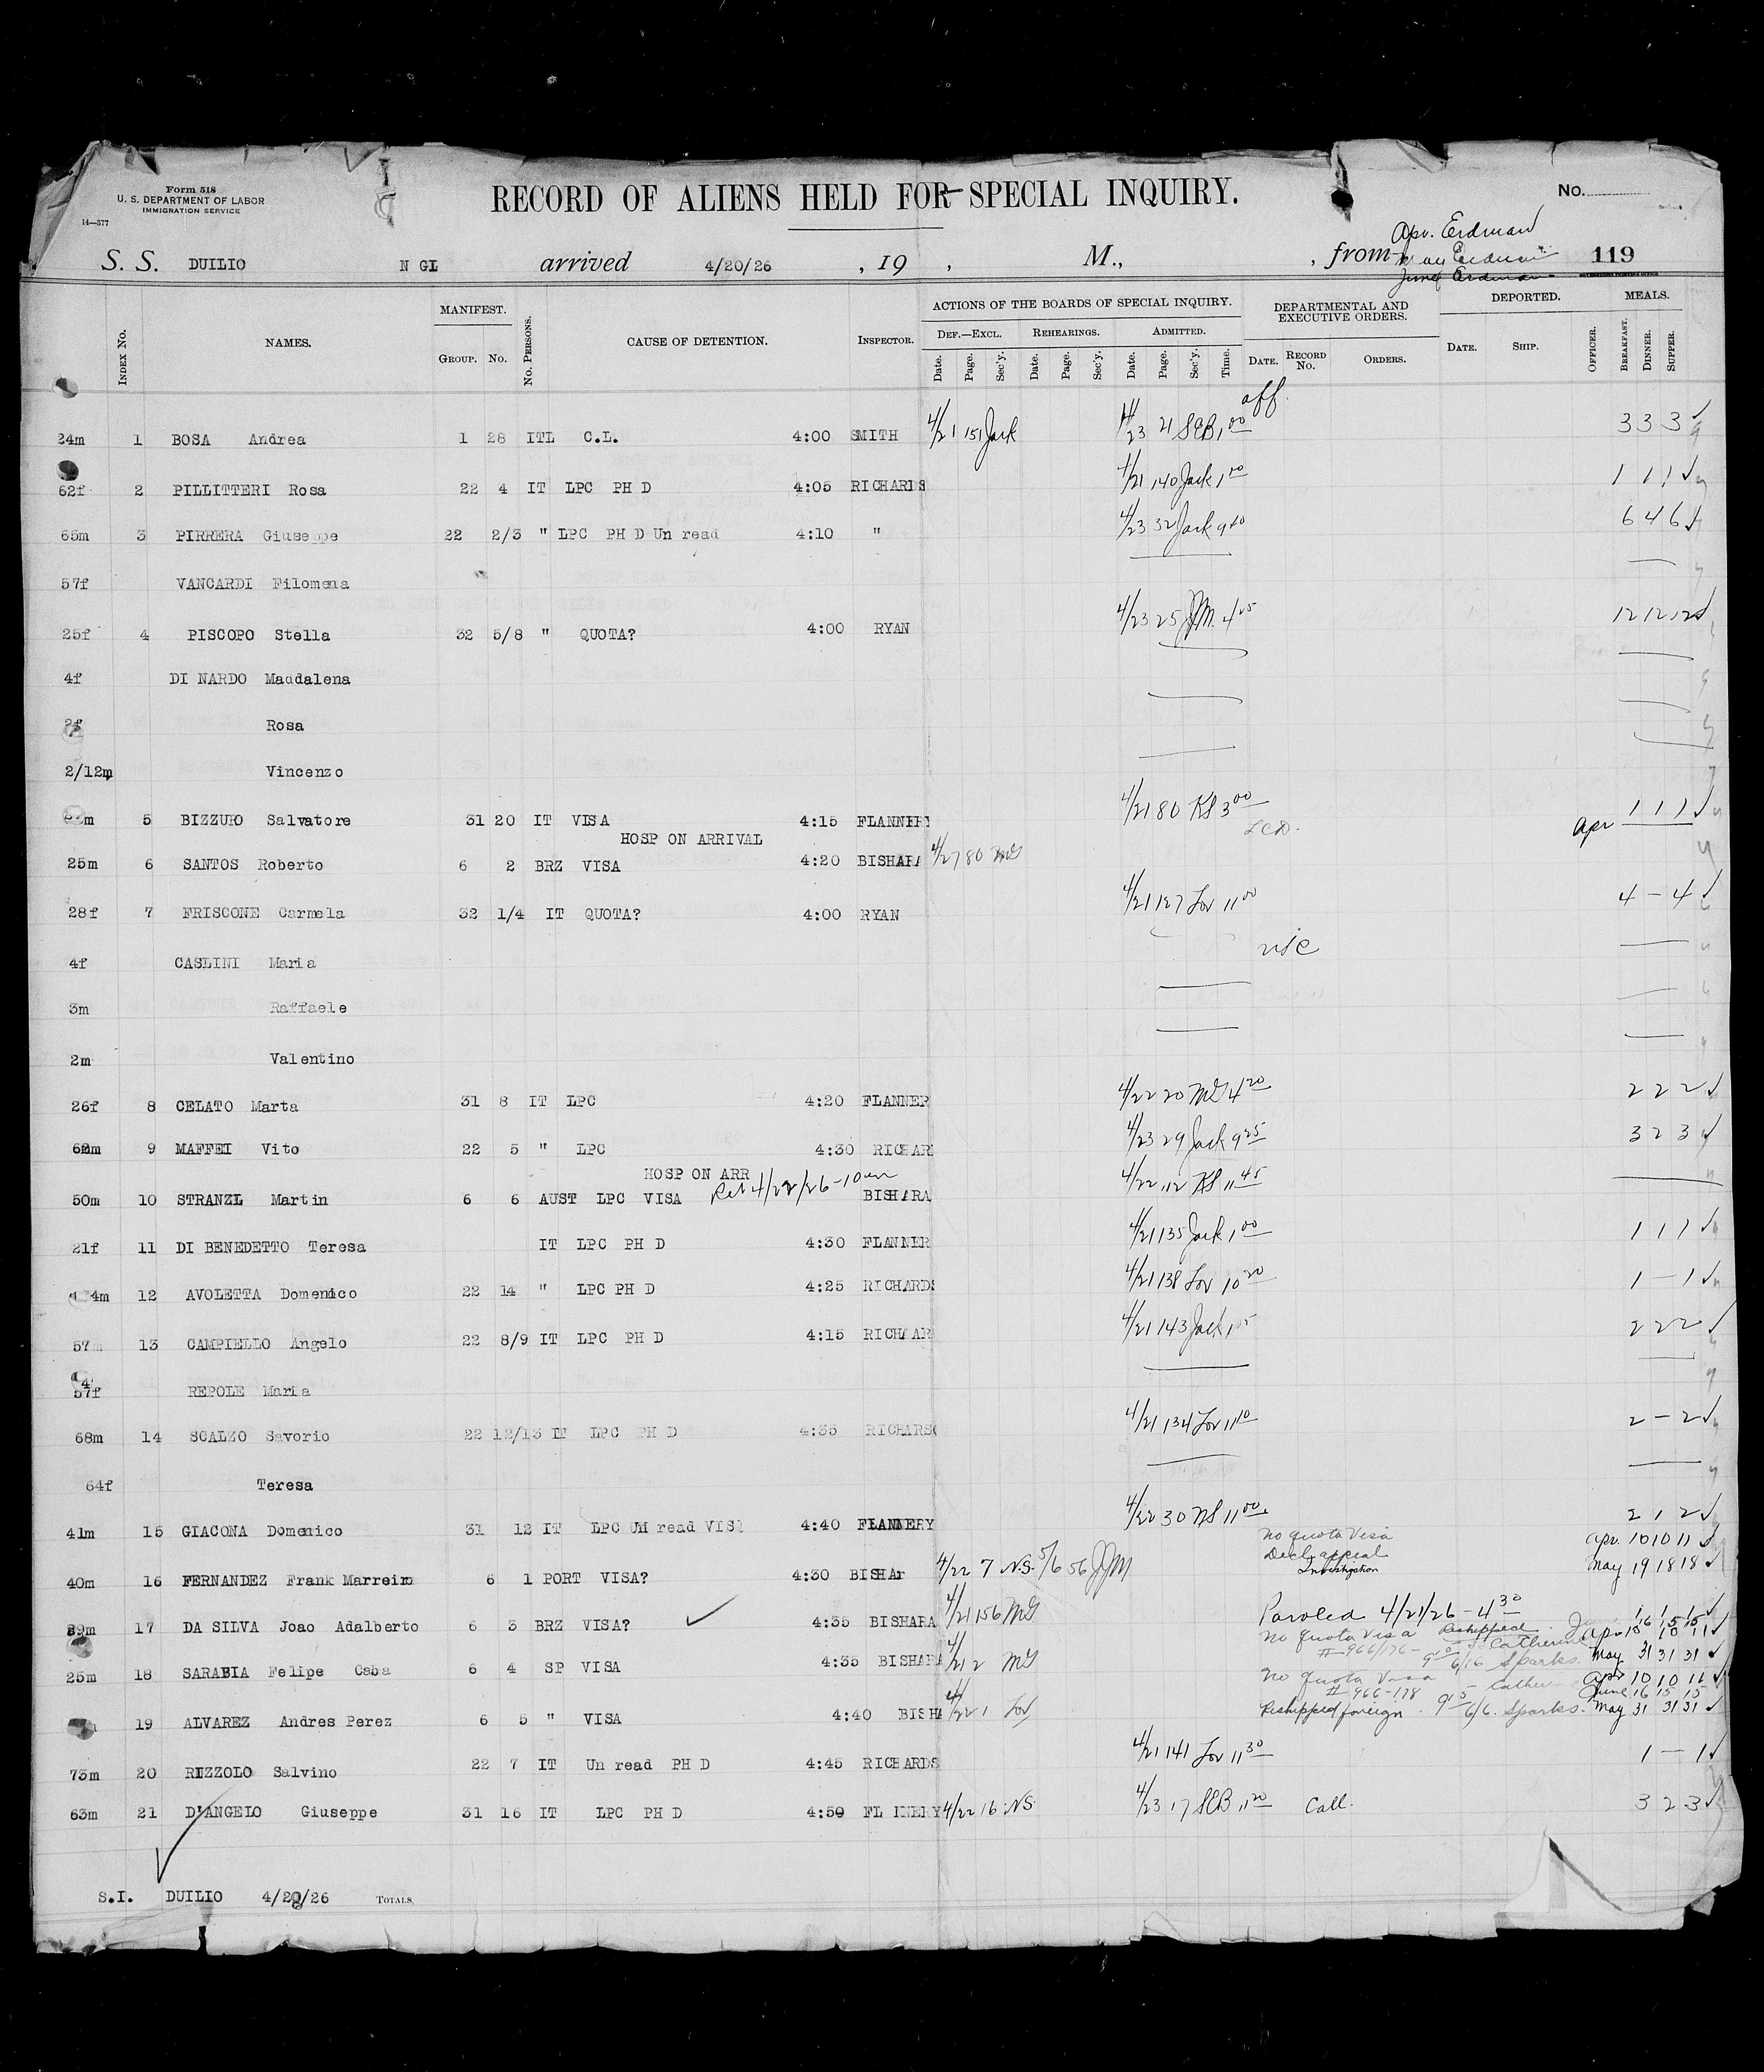 Form 518
U. S. DEPARTMENT OF LABOR
IMMIGRATION SERVICE
14—377
RECORD OF ALIENS HELD FOR SPECIAL INQUIRY.
No.
Apr. Erdman
May Erdman
June Erdman
S. S. DUILIO N GI arrived 4/20/26 , 19 , M., , from 119
INDEX No. NAMES. MANIFEST. GROUP. No. No. PERSONS. CAUSE OF DETENTION. INSPECTOR. ACTIONS OF THE BOARDS OF SPECIAL INQUIRY. DEPARTMENTAL AND EXECUTIVE ORDERS. DEPORTED. MEALS.
DEF.—EXCL. REHEARINGS. ADMITTED.
Date. Page. Sec'y. Date. Page. Sec'y. Date. Page. Sec'y. Time. DATE. RECORD No. ORDERS. DATE. SHIP. OFFICER. BREAKFAST. DINNER. SUPPER.
aff.
24m 1 BOSA Andrea 1 28 ITL C.L. 4:00 SMITH 4/21 151 Jack 4/23 21 SEB 1 00 3 3 3
62f 2 PILLITTERI Rosa 22 4 IT LPC PH D 4:05 RICHARDS 4/21 140 Jack 1 00 1 1 1
65m 3 PIRRERA Giuseppe 22 2/3 " LPC PH D Un read 4:10 " 4/23 32 Jack 9 40 6 4 6
57f VANCARDI Filomena
25f 4 PISCOPO Stella 32 5/8 " QUOTA? 4:00 RYAN 4/23 25 JJM. 4 25 12 12 12
4f DI NARDO Maddalena
2f Rosa
2/12m Vincenzo
m 5 BIZZURO Salvatore 31 20 IT VISA 4:15 FLANNERY 4/21 80 KS 3 00 1 1 1
HOSP ON ARRIVAL Apr
25m 6 SANTOS Roberto 6 2 BRZ VISA 4:20 BISHARA 4/27 80 MG
28f 7 FRISCONE Carmela 32 1/4 IT QUOTA? 4:00 RYAN 4/21 127 Lov 11 00 4 — 4
4f CASLINI Maria
3m Raffaele
2m Valentino
26f 8 CELATO Marta 31 8 IT LPC 4:20 FLANNER 4/22 20 MG 4 20 2 2 2
62m 9 MAFFEI Vito 22 5 " LPC 4:30 RICHAR 4/23 29 Jack 9 25 3 2 3
HOSP ON ARR
50m 10 STRANZL Martin 6 6 AUST LPC VISA Ret 4/22/26-10am BISHARA 4/22 112 KS 11 45
21f 11 DI BENEDETTO Teresa IT LPC PH D 4:30 FLANNER 4/21 135 Jack 1 00 1 1 1
4m 12 AVOLETTA Domenico 22 14 " LPC PH D 4:25 RICHARDS 4/21 138 Lov 10 20 1 — 1
57m 13 CAMPIELLO Angelo 22 8/9 IT LPC PH D 4:15 RICHAR 4/21 143 Jack 1 05 2 2 2
57f REPOLE Maria
68m 14 SCALZO Savorio 22 12/13 IT LPC PH D 4:35 RICHARS 4/21 134 Lov 11 10 2 — 2
64f Teresa
41m 15 GIACONA Domenico 31 12 IT LPC Un read VIS 4:40 FLANNERY 4/22 30 NS 11 00 2 1 2
No quota Visa Apr. 10 10 11
Decl. appeal May 19 18 18
Investigation
40m 16 FERNANDEZ Frank Marreiro 6 1 PORT VISA? 4:30 BISHAr 4/22 7 N.S. 5/6 56 JJM
Paroled 4/21/26 - 4 30 1 1 1
39m 17 DA SILVA Joao Adalberto 6 3 BRZ VISA? 4:35 BISHARA 4/21 156 MG
No quota Visa Reshipped June 16 15 15
# 966/176 - Catherine Apr 10 10 11
25m 18 SARABIA Felipe Caba 6 4 SP VISA 4:35 BISHARA 4/21 2 MG 6/16 Sparks. May 31 31 31
No quota Visa Apr 10 10 11
# 966-178 June 16 15 15
19 ALVAREZ Andres Perez 6 5 " VISA 4:40 BISHA 4/22 1 Lov Reshipped foreign. 9 15 6/6. Sparks. May 31 31 31
73m 20 RIZZOLO Salvino 22 7 IT Un read PH D 4:45 RICHARDS 4/21 141 Lov 11 30 1 — 1
63m 21 D'ANGELO Giuseppe 31 16 IT LPC PH D 4:50 FL NNERY 4/22 16 NS 4/23 17 SEB 11 20 Call. 3 2 3
S.I. DUILIO 4/20/26 TOTALS.